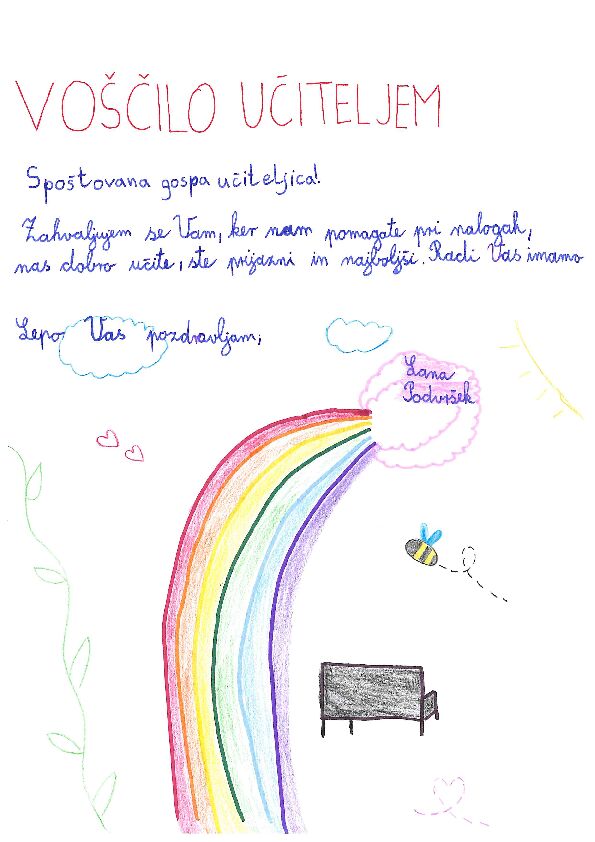 VOŠČILO UČITELJEM
Spoštovana gospa učiteljica!
Zahvaljujem se Vam, ker nam pomagate pri nalogah,
nas dobro učite, ste prijazni in najboljši. Radi Vas imamo
Lepo Vas pozdravljam,
Lana
Podvršek